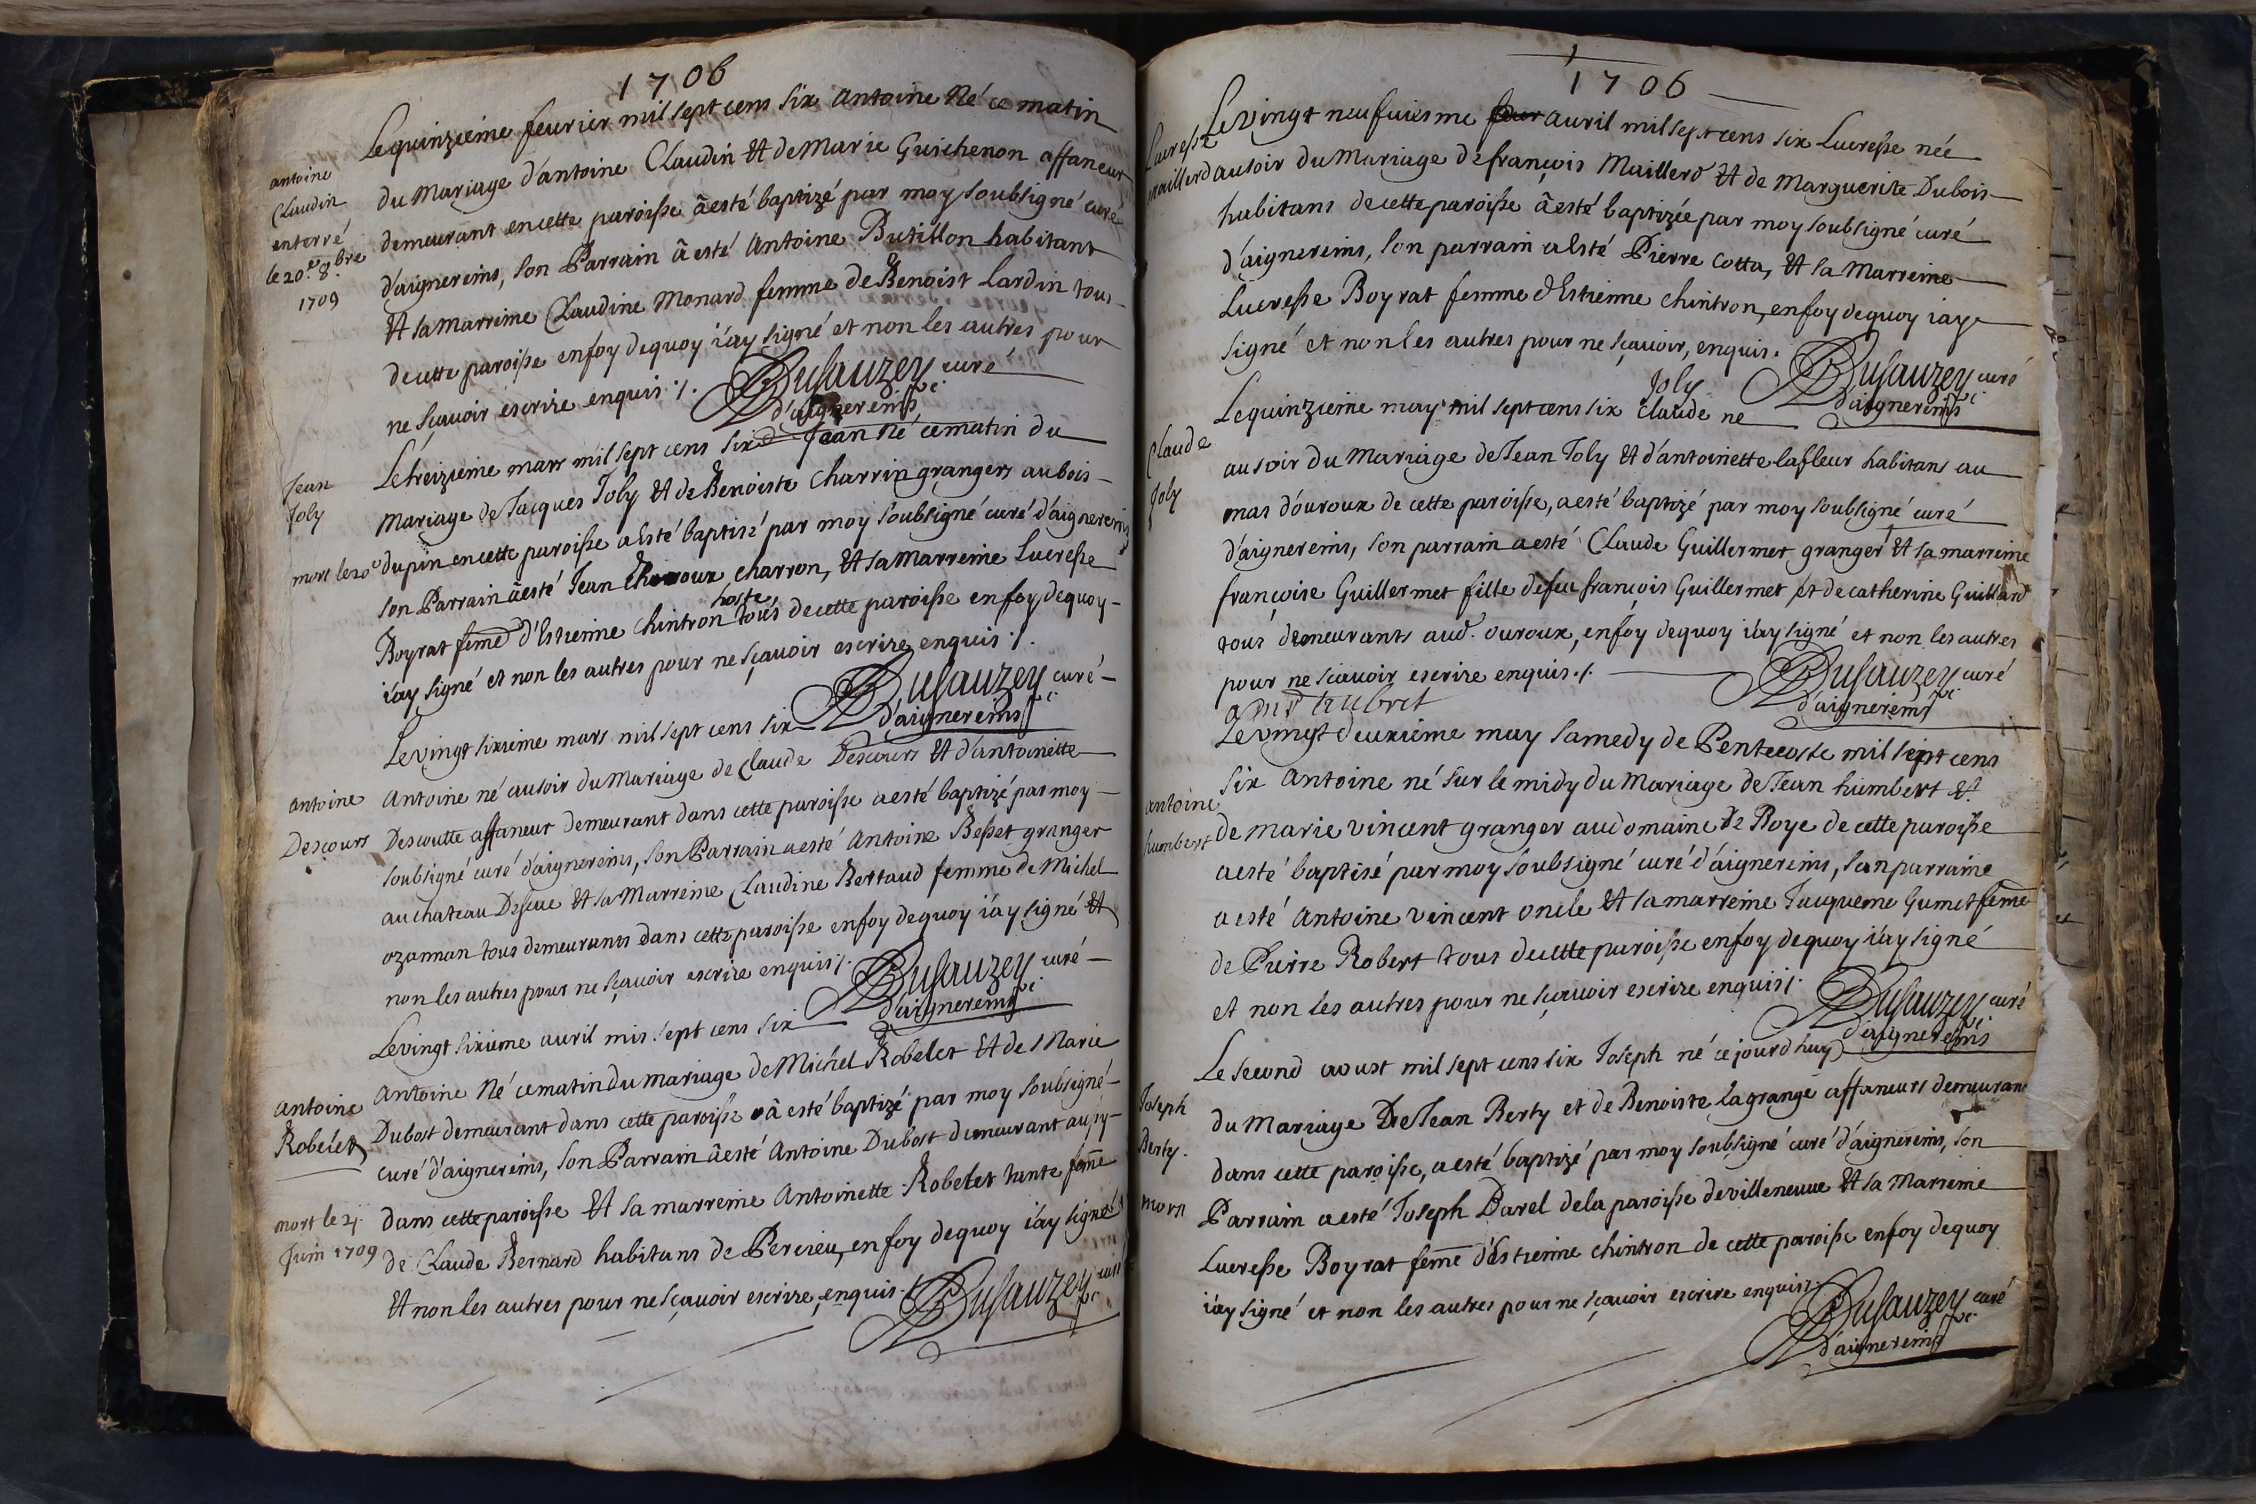 1706
Le quinzieme feurier mil sept cens six antoine Né ce matin
antoine
Claudin
enterré
le 20.e 8.bre
1709
du Mariage d'antoine Claudin et de Marie Guichenon affaneur
demeurant en cette paroisse â esté baptizé par moy soubsigné curé
d'aignereins, son Parrain â esté Antoine Butillon habitant
et sa marreine Claudine Monard femme de Benoist Lardin tous
de cette paroisse en foy de quoy i'ay signé et non les autres pour
ne sçauoir escrire enquis ./.
Dusauzey curé
d'aignereins
Le treizieme mars mil sept cens six Jean né ce matin du
Jean
Joly
mort le 20e
mariage de Jacques Joly et de Benoiste Charrin grangers au bois
du pin en cette paroisse a esté baptisé par moy soubsigné curé d'aignereins
son Parrain â esté Jean charron, et sa Marreine Lucresse
hoste,
Boyrat feme d'Estienne Chintron tous de cette paroisse en foy de quoy
i'ay signé et non les autres pour ne sçauoir escrire enquis ./.
Dusauzey curé
d'aignereins
Le vingt sixieme mars mil sept cens six
antoine
Descours
Antoine né au soir du Mariage de Claude Descours et d'antoinette
Descoutte affaneur demeurant dans cette paroisse a esté baptizé par moy
soubsigné curé d'aignereins, son Parrain a esté Antoine Besset granger
au chateau Descue et sa Marreine Claudine Bertaud femme de Michel
ozannan tous demeurants dans cette paroisse en foy de quoy i'ay signé et
non les autres pour ne sçauoir escrire enquis ./.
Dusauzey curé
d'aignereins
Le vingt sixieme auril mis sept cens six
antoine
Robelet
mort le 21
Juin 1709
Antoine Né ce matin du mariage de Michel Robelet et de Marie
Dubost demeurant dans cette paroisse â esté baptizé par moy soubsigné
curé d'aignereins, son Parrain â esté Antoine Dubost demeurant aussy
dans cette paroisse et sa marreine Antoinette Robelet tante feme
de Claude Bernard habitans de Percieu, en foy de quoy i'ay signé
et non les autres pour ne sçauoir escrire, enquis ./.
Dusauzey curé
1706
Le vingt neufuiesme auril mil sept cens six Lucresse née
Lucresse
maillerd
au soir du Mariage de françois Maillerd et de Marguerite Dubois
habitans de cette paroisse â esté baptizée par moy soubsigné curé
d'aignereins, son parrain a esté Pierre Cotta, et sa Marreine
Lucresse Boyrat femme d'Estienne Chintron, en foy de quoy i'ay
signé et non les autres pour ne sçauoir, enquis.
Dusauzey curé
d'aignereins
Joly
Le quinzieme may mil sept cens six Claude ne
Claude
Joly
au soir du Mariage de Jean Joly et d'antoinette lafleur habitans au
mas d'ouroux de cette paroisse, a esté baptizé par moy soubsigné curé
d'aignereins, son parrain a esté Claude Guillermet granger et sa marreine
françoise Guillermet fille de feu françois Guillermet et de catherine Guilliard
tous demeurants aud. ouroux, en foy de quoy i'ay signé et non les autres
pour ne sçauoir escrire enquis ./.
Dusauzey curé
d'aignereins
Le vingt deuxieme may samedy de Pentecoste mil sept cens
antoine
humbert
six Antoine né sur le midy du Mariage de Jean humbert et
de marie vincent granger au domaine de Roye de cette paroisse
a esté baptisé par moy soubsigné curé d'aignereins, son parraine
a esté Antoine vincent oncle et sa marreine Jacqueme Gumet feme
de Pierre Robert tous de cette paroisse en foy de quoy i'ay signé
et non les autres pour ne sçauoir escrire enquis ./.
Dusauzey curé
d'aignereins
Le second aoust mil sept cens six Joseph né ce jourd'huy
Joseph
Berty.
mort
du Mariage De Jean Berty et de Benoiste lagrange affaneurs demeurant
dans cette paroisse, a esté baptizé par moy soubsigné curé d'aignereins, son
Parrain a esté Joseph Darel de la paroisse de villeneuue et sa Marreine
Lucresse Boyrat feme d'Estienne Chintron de cette paroisse en foy de quoy
i'ay signé et non les autres pour ne sçauoir escrire enquis ./.
Dusauzey curé
d'aignereins